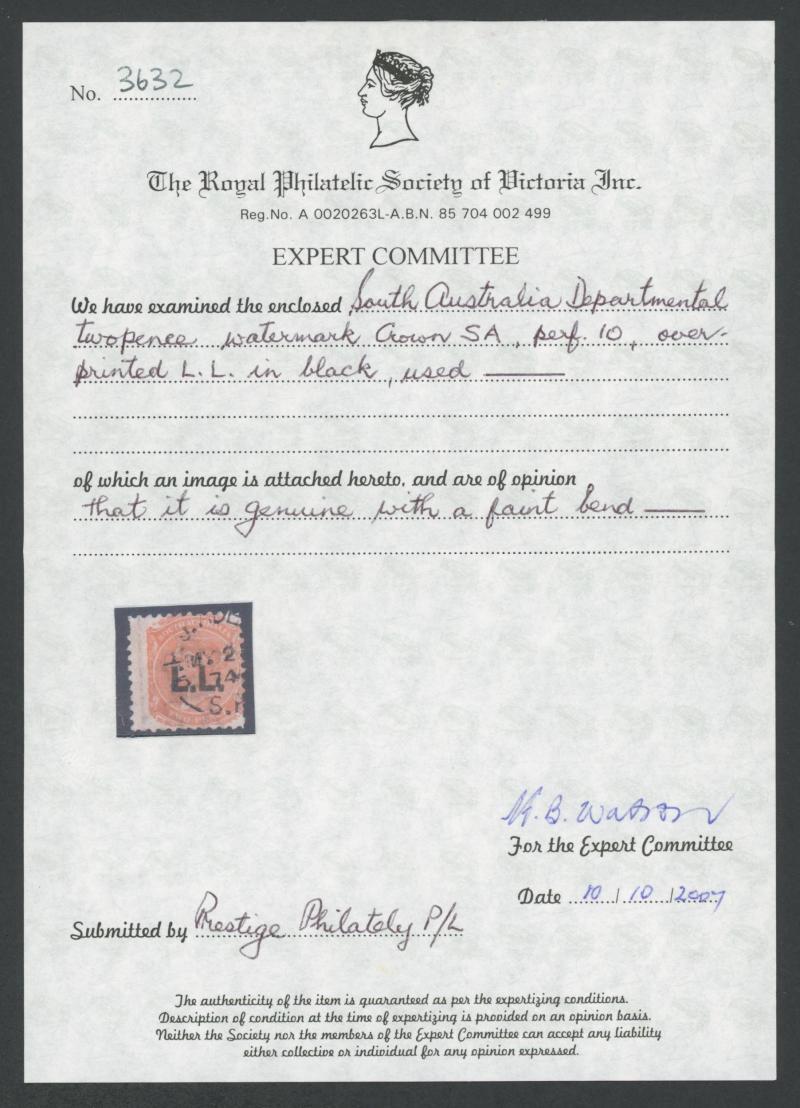 No. 3632
The Royal Philatelic Society of Victoria Inc.
Reg.No. A 0020263L-A.B.N. 85 704 002 499
EXPERT COMMITTEE
We have examined the enclosed South Australia Departmental
twopence watermark Crown SA, perf. 10, over-
printed L.L. in black, used
of which an image is attached hereto, and are of opinion
that it is genuine with a faint bend
MY 2
L.L.
74
S.
K. B. Watson
For the Expert Committee
Date 10 / 10 / 2007
Submitted by Prestige Philately P/L
The authenticity of the item is guaranteed as per the expertizing conditions.
Description of condition at the time of expertizing is provided on an opinion basis.
Neither the Society nor the members of the Expert Committee can accept any liability
either collective or individual for any opinion expressed.